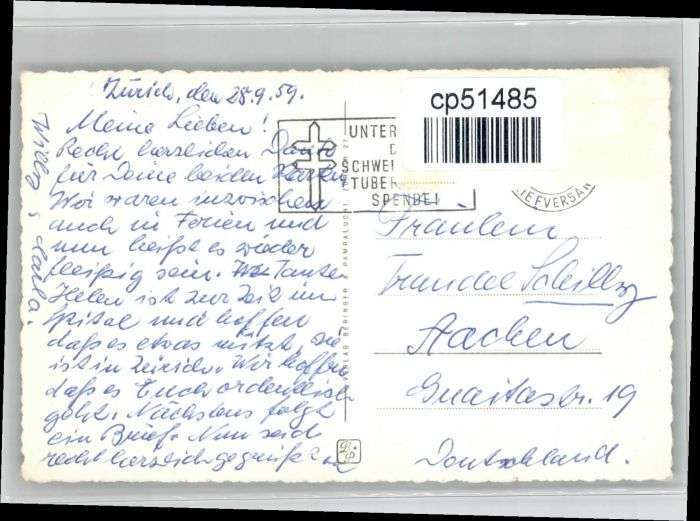 Zürich, den 28.9.59.
Meine Lieben!
Recht herzlichen Dank
für Deine beiden Karten
Wir waren inzwischen
auch in Ferien und
nun heißt es wieder
fleißig sein. Tante
Helen ist zur Zeit im
Spital und hoffen
daß es etwas nützt, sie
ist in Zürich. Wir hoffen
daß es Euch ordentlich
geht. Nächstens folgt
ein Brief. Nun seid
recht herzlich gegrüßt
Willy & 
cp51485
UNTER
SCHWEI
TUBER
SPENDE!
IEFVERSAN
VERLAG BERINGER & PAMPALUCHI
Fräulein
Traudel Schilling
Aachen
Guaitastr. 19
Deutschland.